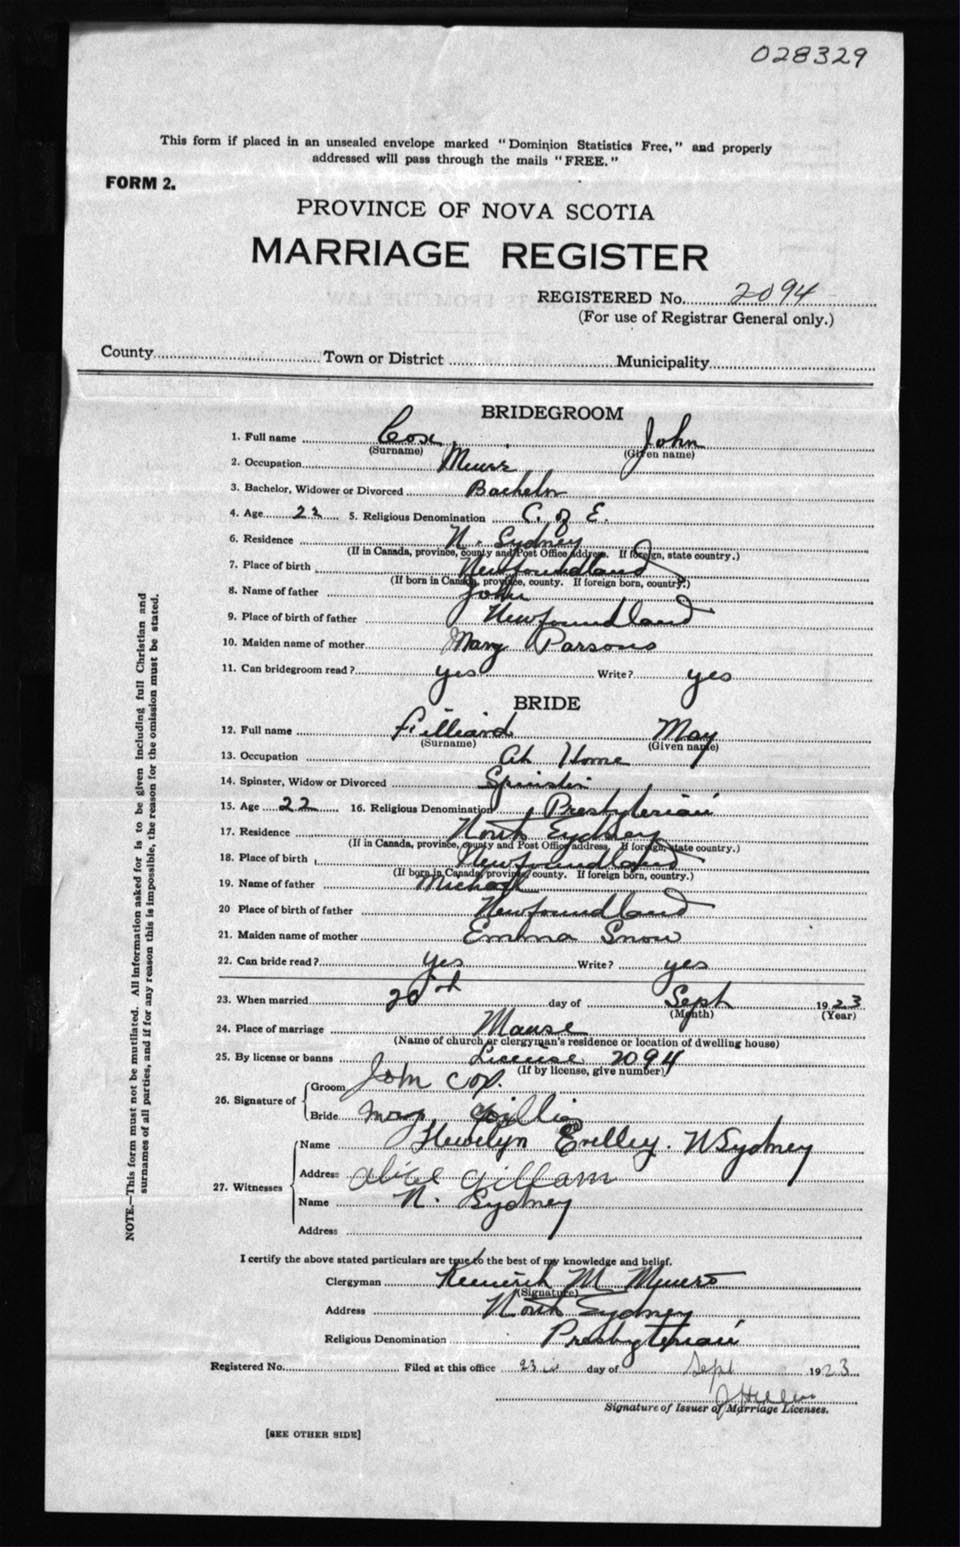 028329
This form if placed in an unsealed envelope marked "Dominion Statistics Free," and properly
addressed will pass through the mails "FREE."
FORM 2.
PROVINCE OF NOVA SCOTIA
MARRIAGE REGISTER
REGISTERED No. 2094
(For use of Registrar General only.)
County Town or District Municipality
BRIDEGROOM
1. Full name Cox, John
(Surname) (Given name)
2. Occupation Miner
3. Bachelor, Widower or Divorced Bachelor
4. Age 22 5. Religious Denomination C. of E.
6. Residence N. Sydney
(If in Canada, province, county and Post Office address. If foreign, state country.)
7. Place of birth Newfoundland
(If born in Canada, province, county. If foreign born, country.)
8. Name of father John
9. Place of birth of father Newfoundland
10. Maiden name of mother Mary Parsons
11. Can bridegroom read? yes Write? yes
BRIDE
12. Full name Filliard May
(Surname) (Given name)
13. Occupation At Home
14. Spinster, Widow or Divorced Spinster
15. Age 22 16. Religious Denomination Presbyterian
17. Residence North Sydney
(If in Canada, province, county and Post Office address. If foreign, state country.)
18. Place of birth Newfoundland
(If born in Canada, province, county. If foreign born, country.)
19. Name of father Michael
20 Place of birth of father Newfoundland
21. Maiden name of mother Emma Snow
22. Can bride read? yes Write? yes
23. When married 20th day of Sept 1923
(Month) (Year)
24. Place of marriage Manse
(Name of church or clergyman's residence or location of dwelling house)
25. By license or banns License 2094
(If by license, give number)
26. Signature of Groom John Cox.
Bride May
27. Witnesses Name Llewelyn N Sydney
Address Alice Gillam
Name N. Sydney
Address
I certify the above stated particulars are true to the best of my knowledge and belief.
Clergyman M Munro
(Signature)
Address North Sydney
Religious Denomination Presbyterian
Registered No. Filed at this office 23 day of Sept 1923
Signature of Issuer of Marriage Licenses.
[SEE OTHER SIDE]
NOTE.—This form must not be mutilated. All information asked for is to be given including full Christian and
surnames of all parties, and if for any reason this is impossible, the reason for the omission must be stated.